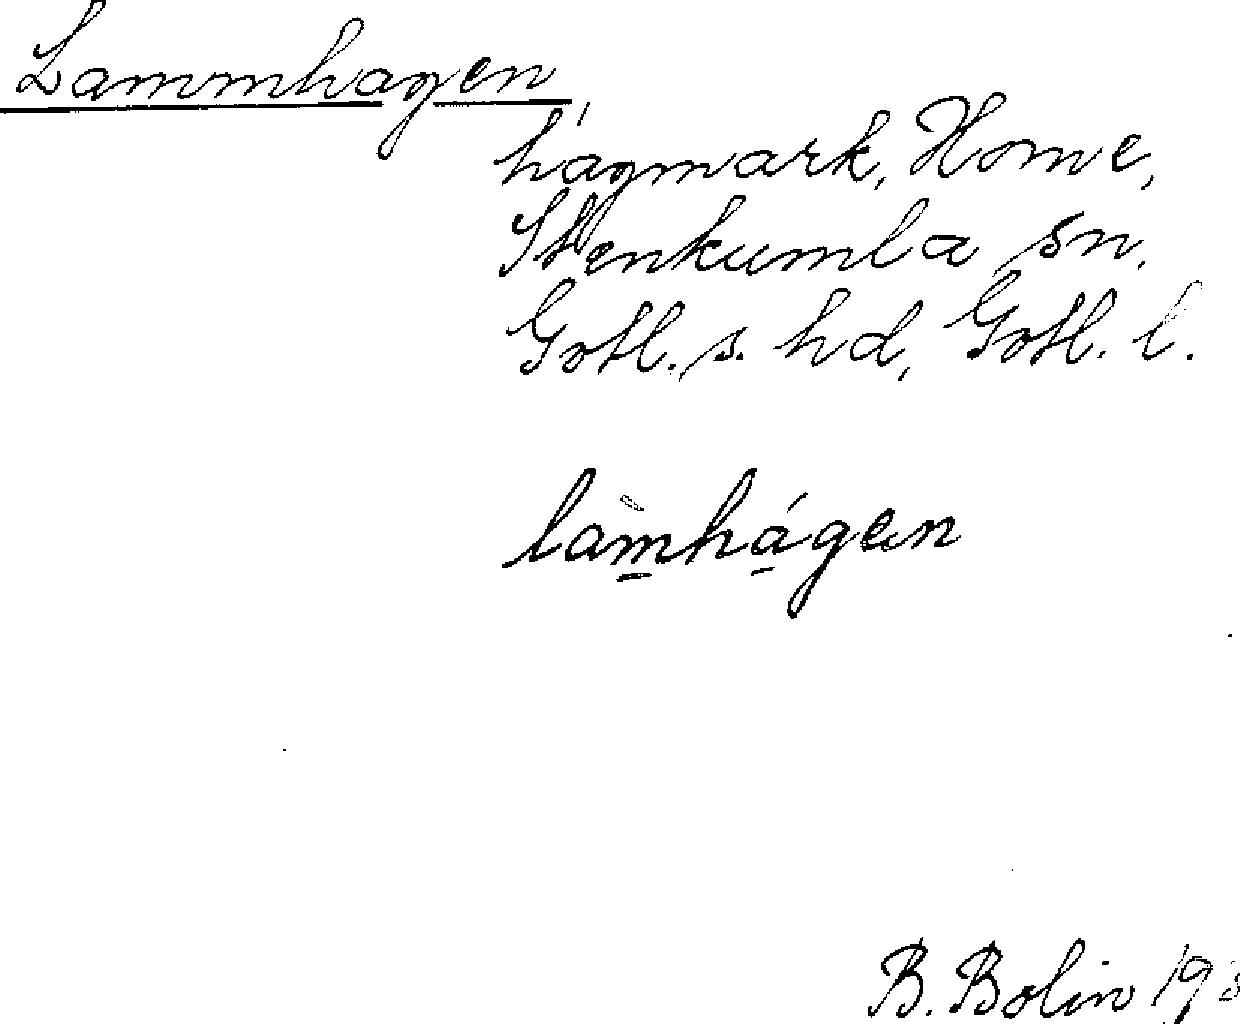 Lammhagen,
hagmark, Home,
Stenkumla sn.
Gotl. s. hd, Gotl. l.
làmhágan
B. Bolin 193